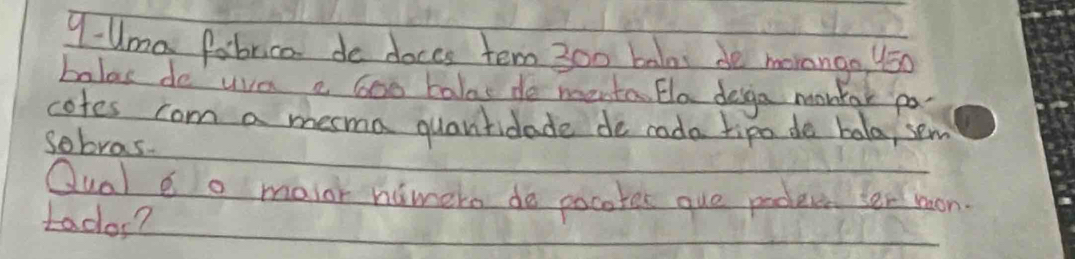 9-Uma fabrica de doces tem 300 balas de morango, 450
balas de uva e 600 balas de menta. Ela deseja montar pa-
cotes com a mesma quantidade de cada tipo de bala, sem
sobras.
Qual é o maior número de pacotes que podem ser mon-
tados?